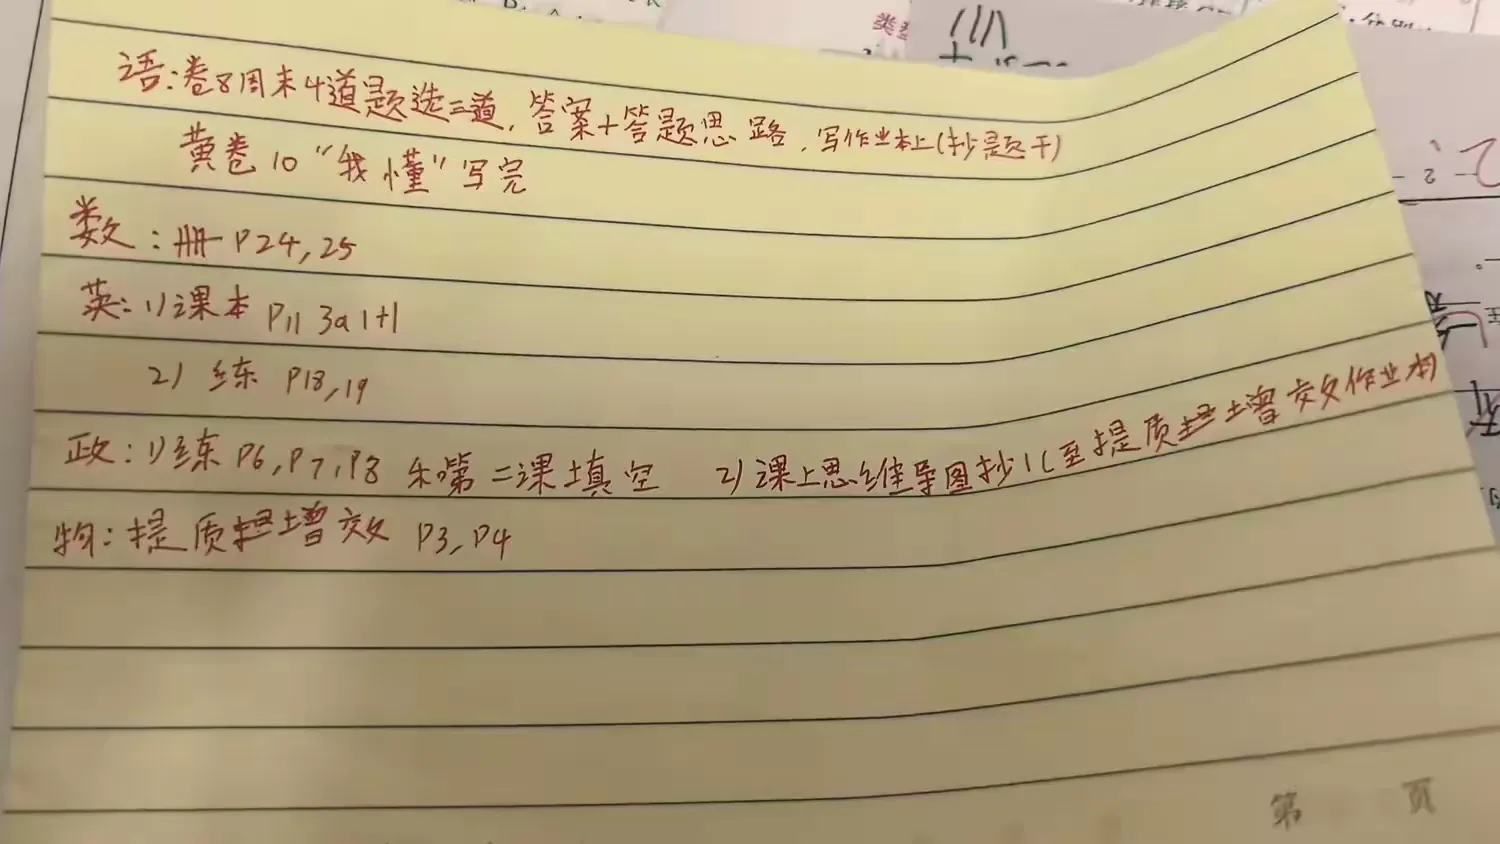 语:卷8周末4道题选三道,答案+答题思路,写作业本上(抄题干)
黄卷10“我懂”写完
数:册P24,25
英:1)课本 P11 3a 1+1
2) 练 P18,19
政:1)练P6,P7,P8 和第二课填空 2)课上思维导图抄1(至提质增效作业本)
物:提质增效 P3,P4
第 页